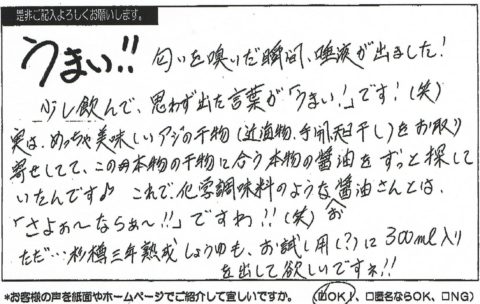 是非ご記入よろしくお願いします。
うまい!! 匂いを嗅いだ瞬間、唾液が出ました!
少し飲んで、思わず出た言葉が「うまい!」です!(笑)
実は、めっちゃ美味しいアジの干物(近海物、手開き天日干し)をお取り
寄せしてて、この本物の干物に合う本物の醤油をずっと探して
いたんです♪ これで、化学調味料のような醤油さんとは、
「さよぉ〜ならぁ〜!!」ですわ!!(笑) お
ただ…杉樽三年熟成しょうゆも、お試し用(?)に300ml入り
を出して欲しいですネ!!
*お客様の声を紙面やホームページでご紹介して宜しいですか。 (□OK)、□匿名ならOK、□NG)